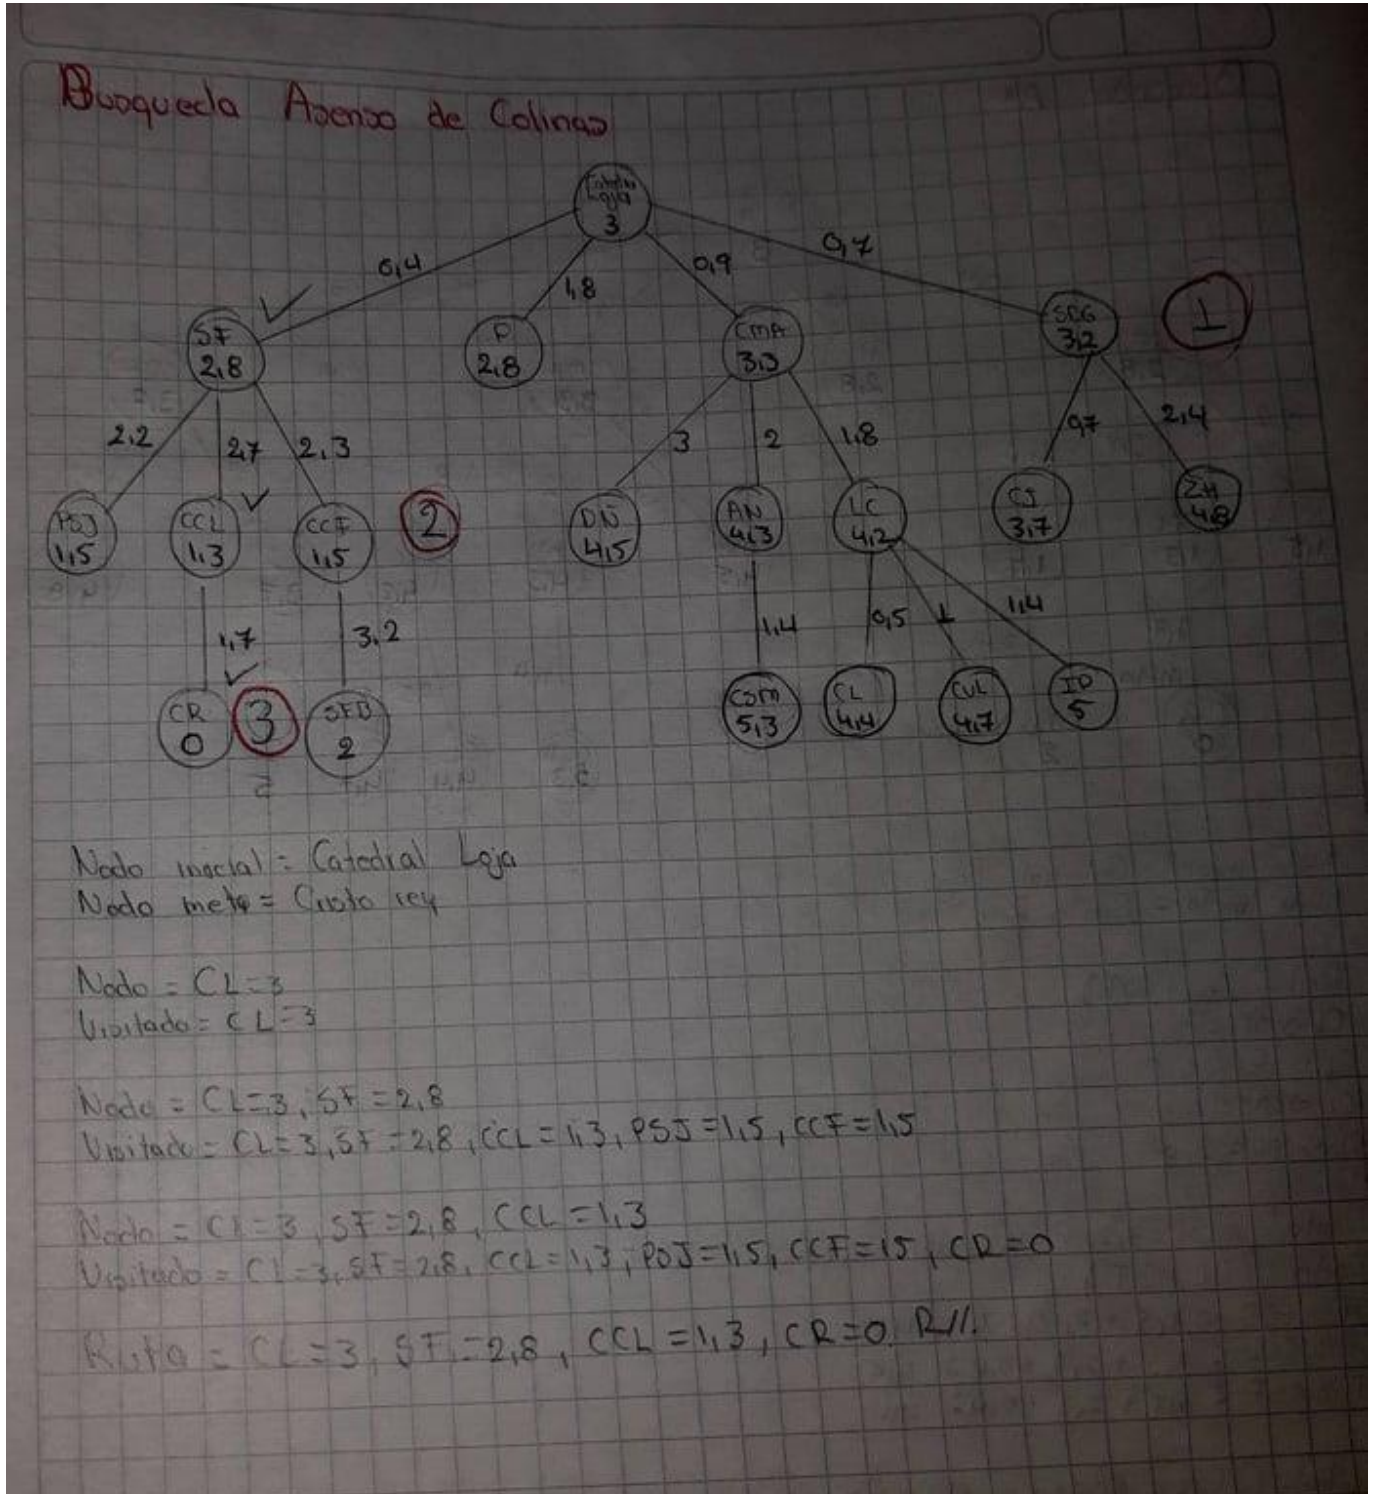 Busqueda Asenso de Colinas
Catedral
Loja
3
0,4
1,8
0,9
0,7
SF
2,8
P
2,8
CMA
3,3
SEG
3,2
1
2,2
2,7
2,3
3
2
1,8
0,7
2,4
PSJ
1,5
CCL
1,3
CCF
1,5
2
DÑ
4,5
AN
4,3
LC
4,2
CJ
3,7
4,8
1,7
3,2
1,4
0,5
1
1,4
CR
0
3
2
COM
5,3
CL
4,4
CUL
4,7
5
Nodo inicial = Catedral Loja
Nodo meta = Cristo rey
Nodo = CL=3
Visitado = CL=3
Nodo = CL=3, SF=2,8
Visitado = CL=3, SF=2,8, CCL=1,3, PSJ=1,5, CCF=1,5
Nodo = CL=3, SF=2,8, CCL=1,3
Visitado = CL=3, SF=2,8, CCL=1,3, PSJ=1,5, CCF=15, CR=0
Ruta = CL=3, SF=2,8, CCL=1,3, CR=0 R//.